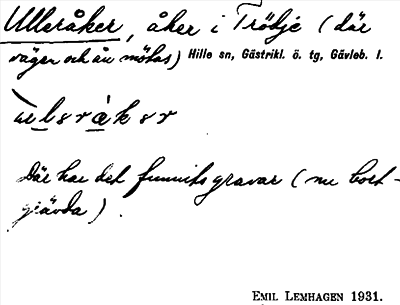 Ulleråker, åker i Trödje (där
vägen och ån mötas) Hille sn, Gästrikl. ö. tg, Gävleb. l.
Där har det funnits gravar (nu bort-
gjävda).
EMIL LEMHAGEN 1931.